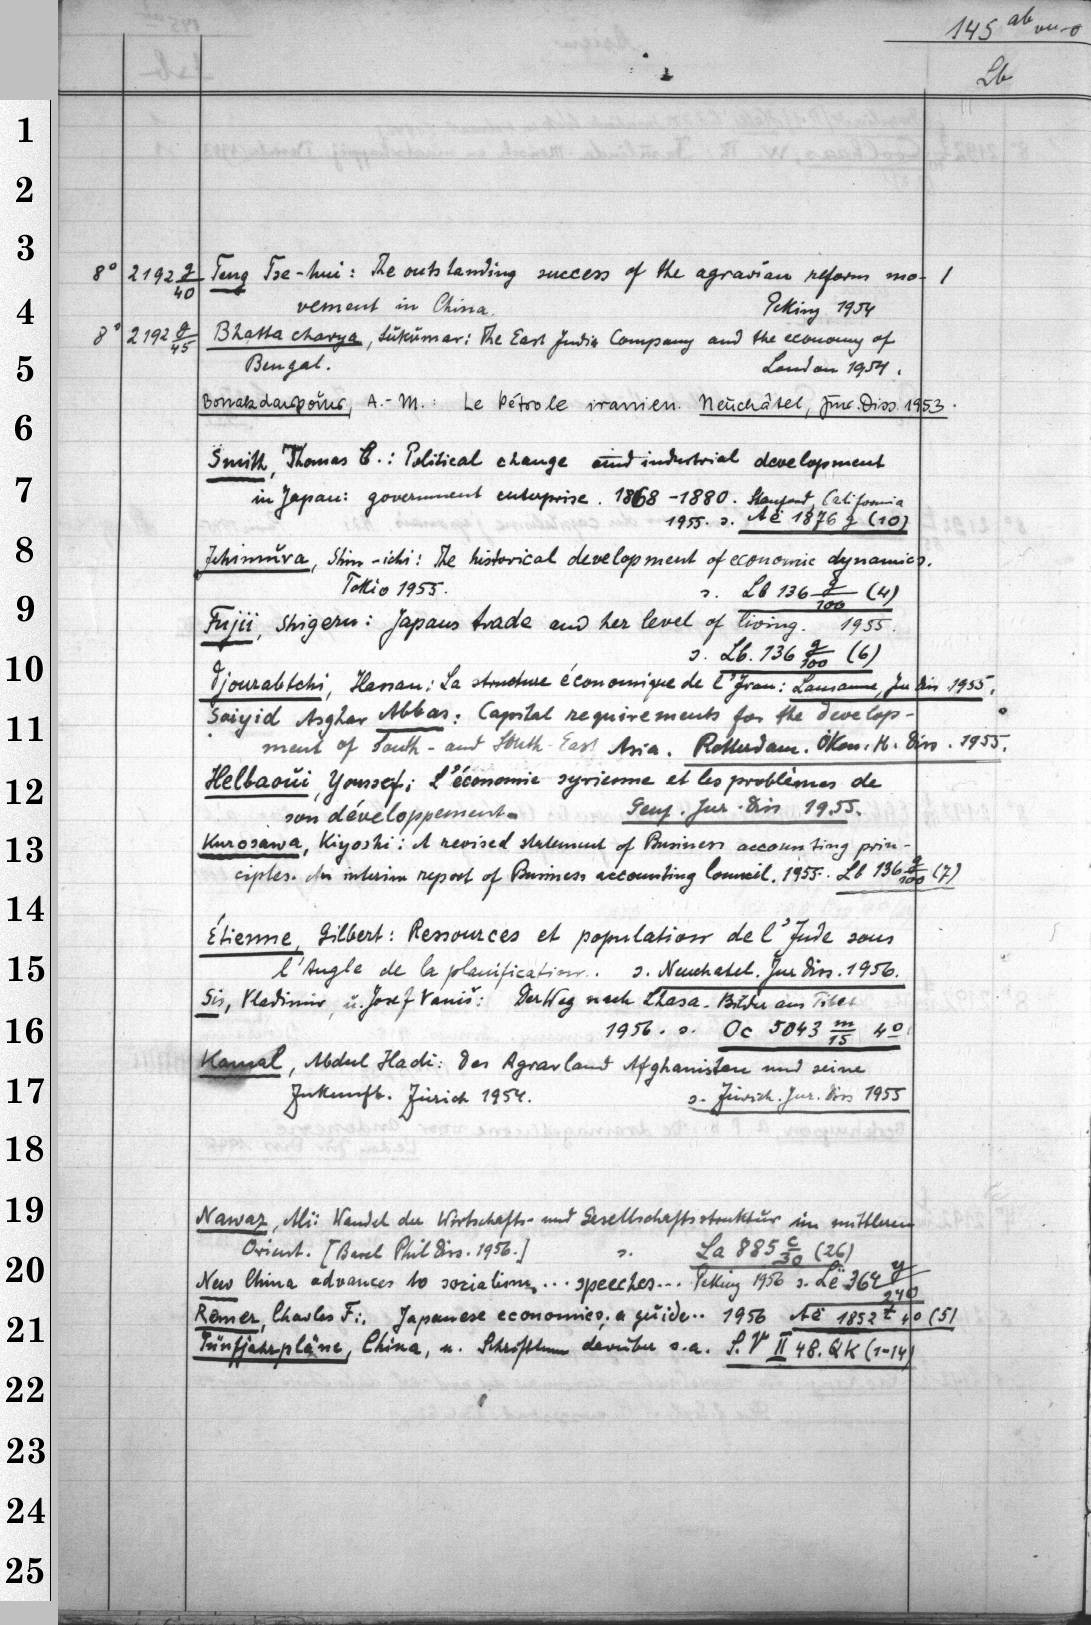 145 ab
Lb
1
2
3
8° 2192 g/40 Teng Tse-hui: The outstanding success of the agrarian reform mo- 1
4
vement in China. Peking 1954
8° 2192 g/45 Bhattacharya, Sukumar: The East India Company and the economy of
5
Bengal. London 1954.
A.-M.: Le Pétrole iranien. Neuchâtel, Jur. Diss. 1953.
6
Smith, Thomas C.: Political change and industrial development
7
in Japan: government enterprise. 1868-1880. Stanford, California
1955. s. Aë 1876 g (10)
8
Ichimura, Shin-ichi: The historical development of economic dynamics.
Tokio 1955. s. Lb 136 g/100 (4)
9
Fujii, Shigeru: Japans trade and her level of living. 1955.
s. Lb. 136 g/100 (6)
10
Djourabtchi, Hassan: La structure économique de l'Iran: Lausanne, Jur Diss 1955.
Saiyid Asghar Abbas: Capital requirements for the develop-
11
ment of South- and South-East Asia. Rotterdam. Ökon. H. Diss. 1955.
Helbaoui, Youssef; L'économie syrienne et les problèmes de
12
son développement. Genf. Jur. Diss 1955.
Kurosawa, Kiyoshi: A revised statement of Business accounting prin-
13
ciples. An interim report of Business accounting Council. 1955. Lb 136 g/100 (7)
14
Étienne, Gilbert: Ressources et population de l'Inde sous
15
l'Angle de la planification. s. Neuchatel. Jur Diss. 1956.
Sis, Vladimir, u. Josef Vaniš: Der Weg nach Lhasa. Bilder aus Tibet
16
1956. s. Oc 5043 m/15 4°
Kamal, Abdul Hadi: Das Agrarland Afghanistan und seine
17
Zukunft. Zürich 1954. s. Zürich. Jur. Diss 1955
18
19
Nawaz, Ali: Wandel der Wirtschafts- und Gesellschaftsstruktur im mittleren
Orient. [Basel Phil Diss. 1956.] s. La 885 c/30 (26)
20
New China advances to socialism... speeches... Peking 1956 s. Lë 364 y/240
Remer, Charles F.: Japanese economics; a guide.. 1956 Aë 1852 t 40 (5)
21
Fünfjahrpläne, China, u. Schrifttum darüber s.a. S.V II 48. QK (1-14)
22
23
24
25